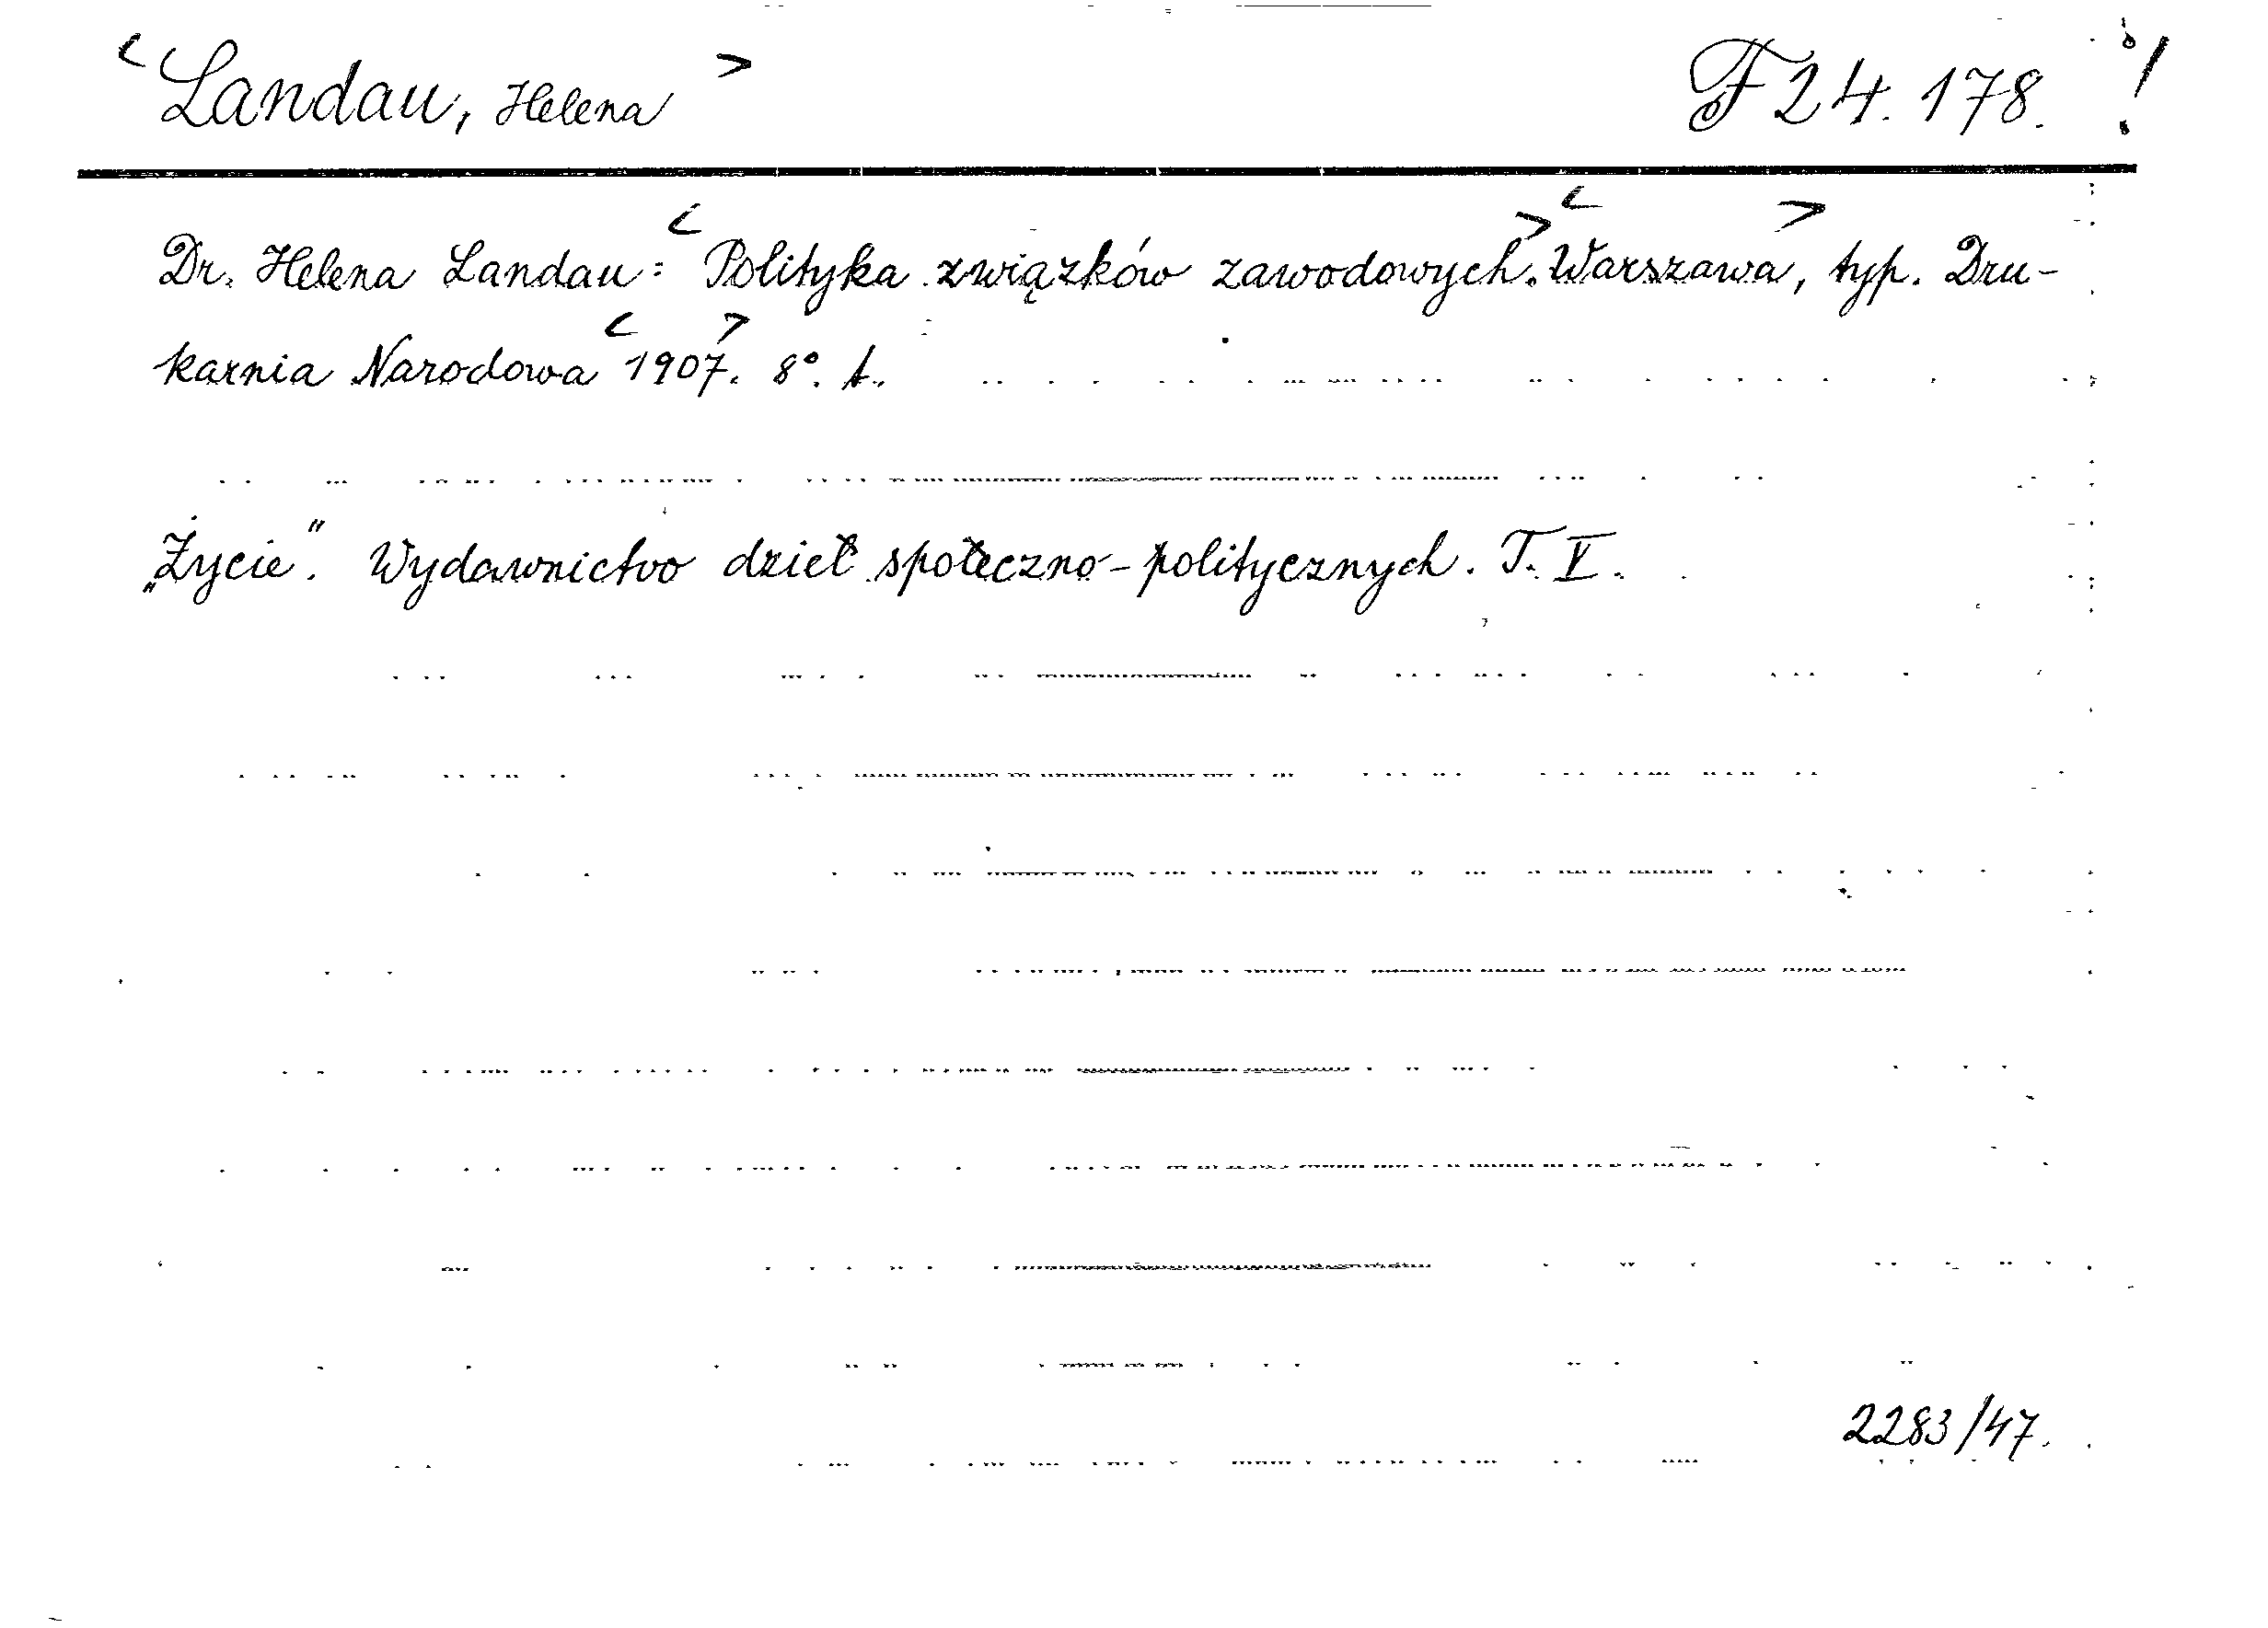 <Landau, Helena> F 24.178. !
Dr. Helena Landau: <Polityka związków zawodowych>. <Warszawa>, typ. Dru-
karnia Narodowa <1907>. 8°. t.
„Życie". Wydawnictwo dzieł społeczno-politycznych. T. V.
2283/47.